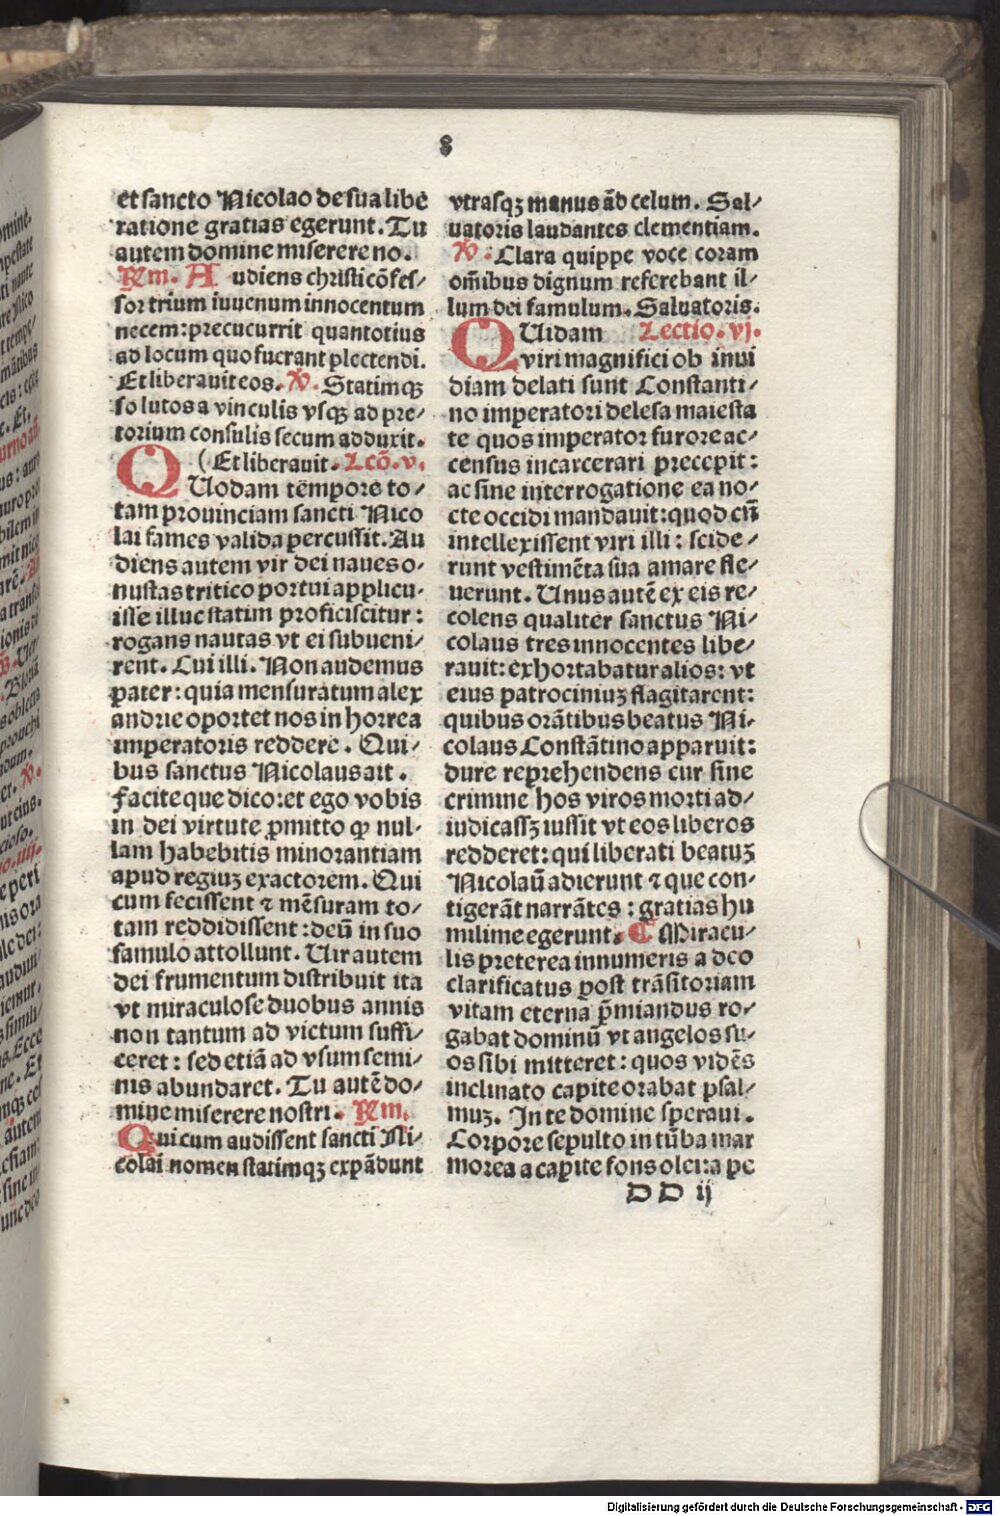 8
et sancto Nicolao de sua libe
ratione gratias egerunt. Tu
autem domine miserere no.
Rm. Audiens christi cōfes⸗
sor trium iuuenum innocentum
necem: precucurrit quantotius
ad locum quo fuerant plectendi.
Et liberauit eos. V. Statimqꝫ
solutos a vinculis vsqꝫ ad pre⸗
torium consulis secum adduxit.
(Et liberauit. Lcō. v.
QUodam tēmpore to⸗
tam prouinciam sancti Nico
lai fames valida percussit. Au
diens autem vir dei naues o⸗
nustas tritico portui applicu⸗
isse illuc statim proficiscitur:
rogans nautas vt ei subueni⸗
rent. Cui illi. Non audemus
pater: quia mensuratum alex
andrie oportet nos in horrea
imperatoris reddere. Qui⸗
bus sanctus Nicolaus ait.
facite que dico: et ego vobis
in dei virtute ꝓmitto ꝙ nul⸗
lam habebitis minorantiam
apud regiuꝫ exactorem. Qui
cum fecissent ⁊ mēsuram to⸗
tam reddidissent: deū in suo
famulo attollunt. Uir autem
dei frumentum distribuit ita
vt miraculose duobus annis
non tantum ad victum suffi⸗
ceret: sed etiā ad vsum semi⸗
nis abundaret. Tu autē do⸗
mine miserere nostri. Rm.
Qui cum audissent sancti Ni⸗
colai nomen statimqꝫ expādunt
vtrasqꝫ manus ād celum. Sal⸗
uatoris laudantes clementiam.
V. Clara quippe voce coram
om̄ibus dignum referebant il⸗
lum dei famulum. Saluatoris.
QUidam Lectio. vj.
viri magnifici ob inui
diam delati sunt Constanti⸗
no imperatori de lesa maiesta
te quos imperator furore ac⸗
census incarcerari precepit:
ac sine interrogatione ea no⸗
cte occidi mandauit: quod cū
intellexissent viri illi: scide⸗
runt vestimēta sua amare fle⸗
uerunt. Unus autē ex eis re⸗
colens qualiter sanctus Ni⸗
colaus tres innocentes libe⸗
rauit: exhortabatur alios: vt
eius patrociniuꝫ flagitarent:
quibus orātibus beatus Ni⸗
colaus Constātino apparuit:
dure reprehendens cur sine
crimine hos viros morti ad⸗
iudicassꝫ iussit vt eos liberos
redderet: qui liberati beatuꝫ
Nicolaū adierunt ⁊ que con⸗
tigerāt narrātes: gratias hu
milime egerunt. ¶ Miracu⸗
lis preterea innumeris a deo
clarificatus post trāsitoriam
vitam eterna p̄miandus ro⸗
gabat dominū vt angelos su⸗
os sibi mitteret: quos vidēs
inclinato capite orabat psal⸗
muꝫ. In te domine speraui.
Corpore sepulto in tūba mar
morea a capite fons olei: a pe
D D ij
Digitalisierung gefördert durch die Deutsche Forschungsgemeinschaft - DFG